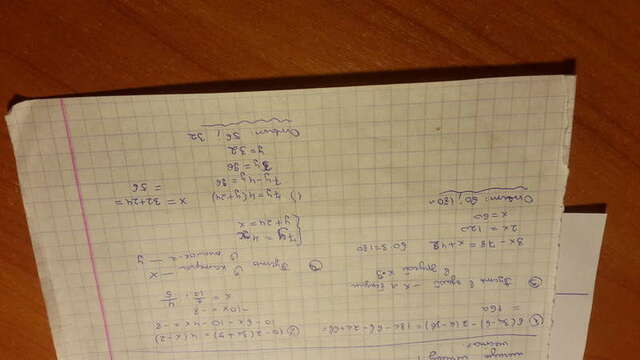 ① 6(3a-b)-2(a-3b)=18a-6b-2a+6b=
= 16a
② 10-2(3x+5)=4(x-2)
10-6x-10-4x=-8
-10x=-8
x=8/10; 4/5
③ Пусть в одной - x
в другой x·3
3x-78=x+42
2x=120
x=60
60·3=180
Ответ: 60; 180
④ Пусть
{7y=4x
{y+24=x
1) 7y=4(y+24)
7y-4y=96
3y=96
y=32
x=32+24=
=56
Ответ: 56; 32